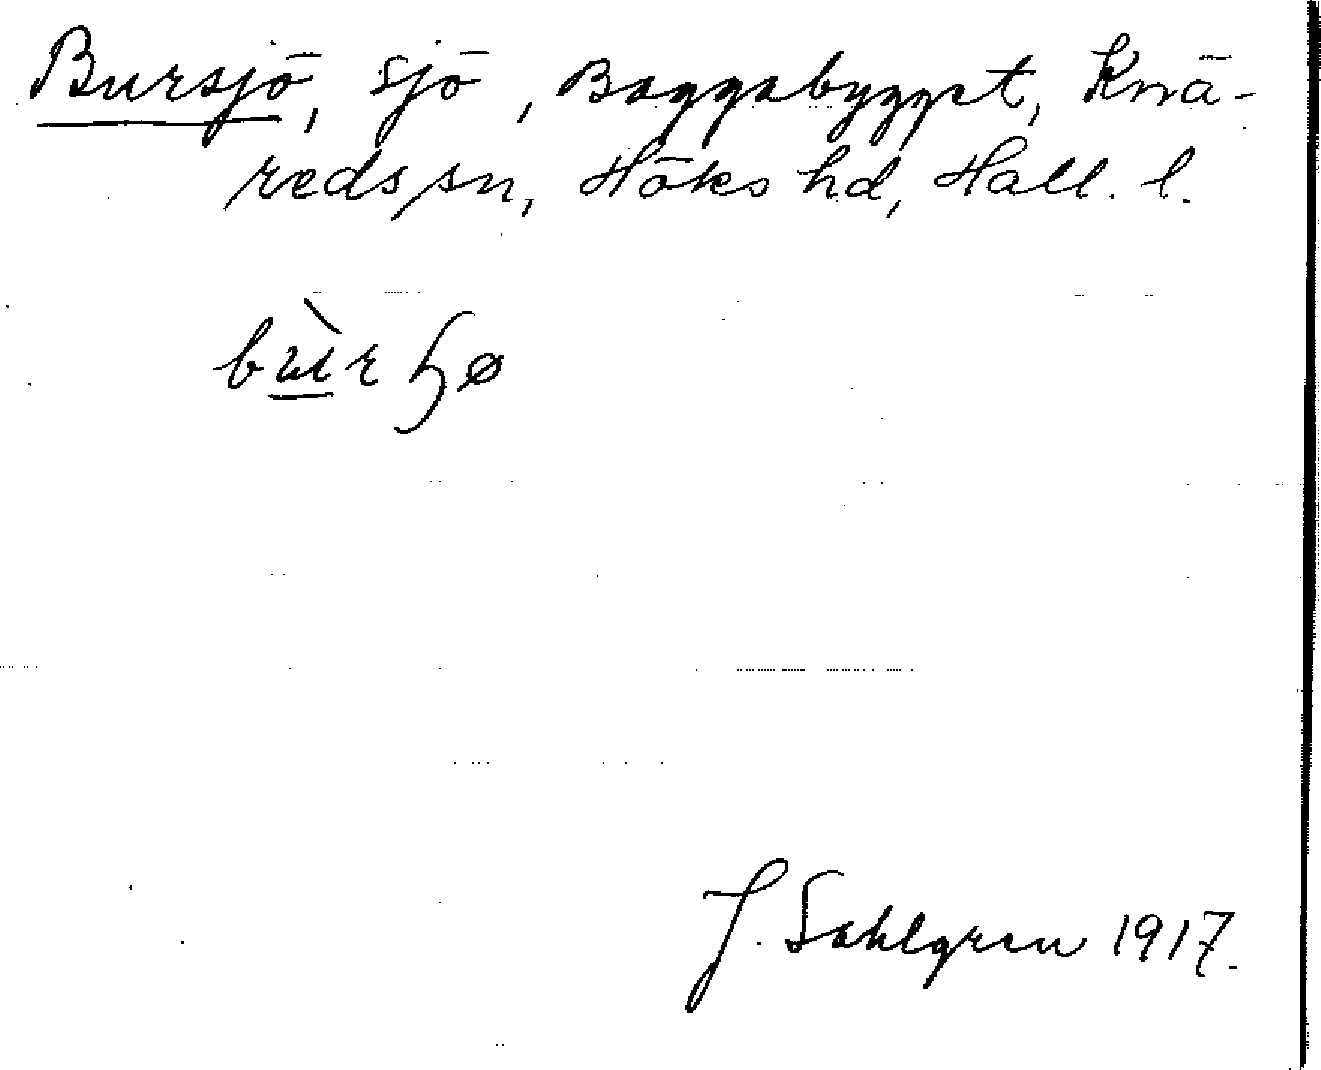 Bursjö, sjö, Baggabygget, Knä-
reds sn, Höks hd, Hall. l.
J. Sahlgren 1917.